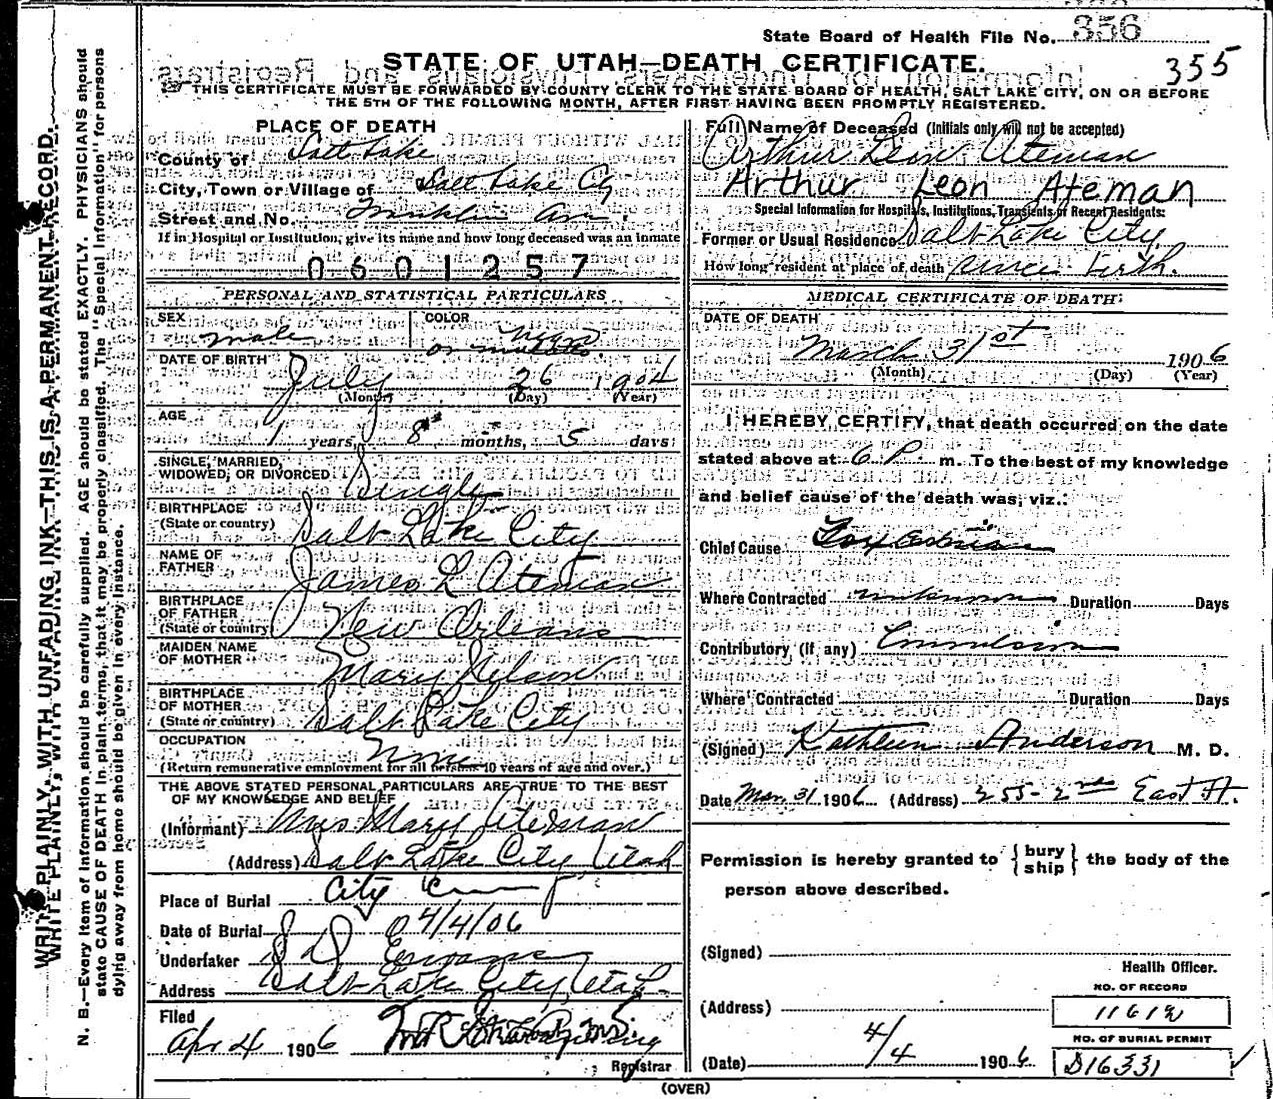 State Board of Health File No. 356
355
STATE OF UTAH—DEATH CERTIFICATE.
THIS CERTIFICATE MUST BE FORWARDED BY COUNTY CLERK TO THE STATE BOARD OF HEALTH, SALT LAKE CITY, ON OR BEFORE
THE 5TH OF THE FOLLOWING MONTH, AFTER FIRST HAVING BEEN PROMPTLY REGISTERED.
WRITE PLAINLY, WITH UNFADING INK—THIS IS A PERMANENT RECORD.
N. B.—Every item of information should be carefully supplied. AGE should be stated EXACTLY. PHYSICIANS should
state CAUSE OF DEATH in plain terms, that it may be properly classified. The "Special Information" for persons
dying away from home should be given in every instance.
PLACE OF DEATH
County of Salt Lake
City, Town or Village of Salt Lake City
Street and No. Franklin Ave
If in Hospital or Institution, give its name and how long deceased was an inmate
0601257
PERSONAL AND STATISTICAL PARTICULARS
SEX male
COLOR Negro
or mulatto
DATE OF BIRTH July 26 1904
(Month) (Day) (Year)
AGE 1 years, 8 months, 5 days
SINGLE, MARRIED,
WIDOWED, OR DIVORCED Single
BIRTHPLACE
(State or country) Salt Lake City
NAME OF
FATHER James L Ateman
BIRTHPLACE
OF FATHER
(State or country) New Orleans
MAIDEN NAME
OF MOTHER Mary Nelson
BIRTHPLACE
OF MOTHER
(State or country) Salt Lake City
OCCUPATION None
(Return remunerative employment for all persons 10 years of age and over.)
THE ABOVE STATED PERSONAL PARTICULARS ARE TRUE TO THE BEST
OF MY KNOWLEDGE AND BELIEF
(Informant) Mrs Mary Ateman
(Address) Salt Lake City Utah
Place of Burial City
Date of Burial 4/4/06
Undertaker S D Evans
Address Salt Lake City Utah
Filed
Apr 4 1906
Registrar
Full Name of Deceased (Initials only will not be accepted)
Arthur Leon Ateman
Arthur Leon Ateman
Special Information for Hospitals, Institutions, Transients or Recent Residents:
Former or Usual Residence Salt Lake City
How long resident at place of death since birth.
MEDICAL CERTIFICATE OF DEATH
DATE OF DEATH
March 31st 1906
(Month) (Day) (Year)
I HEREBY CERTIFY, that death occurred on the date
stated above at 6 P m. To the best of my knowledge
and belief cause of the death was, viz.:
Chief Cause
Where Contracted unknown Duration Days
Contributory (if any) Convulsions
Where Contracted Duration Days
(Signed) Kathleen Anderson M. D.
Date Mar 31 1906 (Address) 255-2nd East St.
Permission is hereby granted to {bury ship} the body of the
person above described.
(Signed)
Health Officer.
(Address)
NO. OF RECORD
(Date) 4/4 1906
NO. OF BURIAL PERMIT
D16331
(OVER)